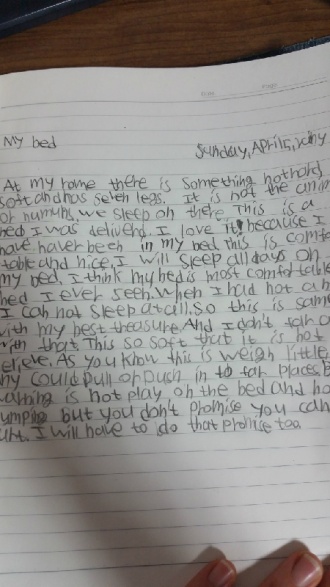 My bed
Sunday, April 5, rainy
At my home there is something not hard,
soft and has seven legs. It is not the anim
or numums, we sleep on there This is a
bed I was deliverd. I love it because I
have haver been in my bed this is comfo
table and nice. I will sleep all days on
my bed. I think my bed is most comfortable
bed I ever seen. When I had not a
I can not sleep at call. So this is sam
with my best treasure And I don't talk a
with that. This so soft that it is not
elieve. As you know this is weigh little.
ny could pull or push in to far places. B
warning is not play on the bed and no
umping but you don't promise you can
urt. I will have to do that promice too